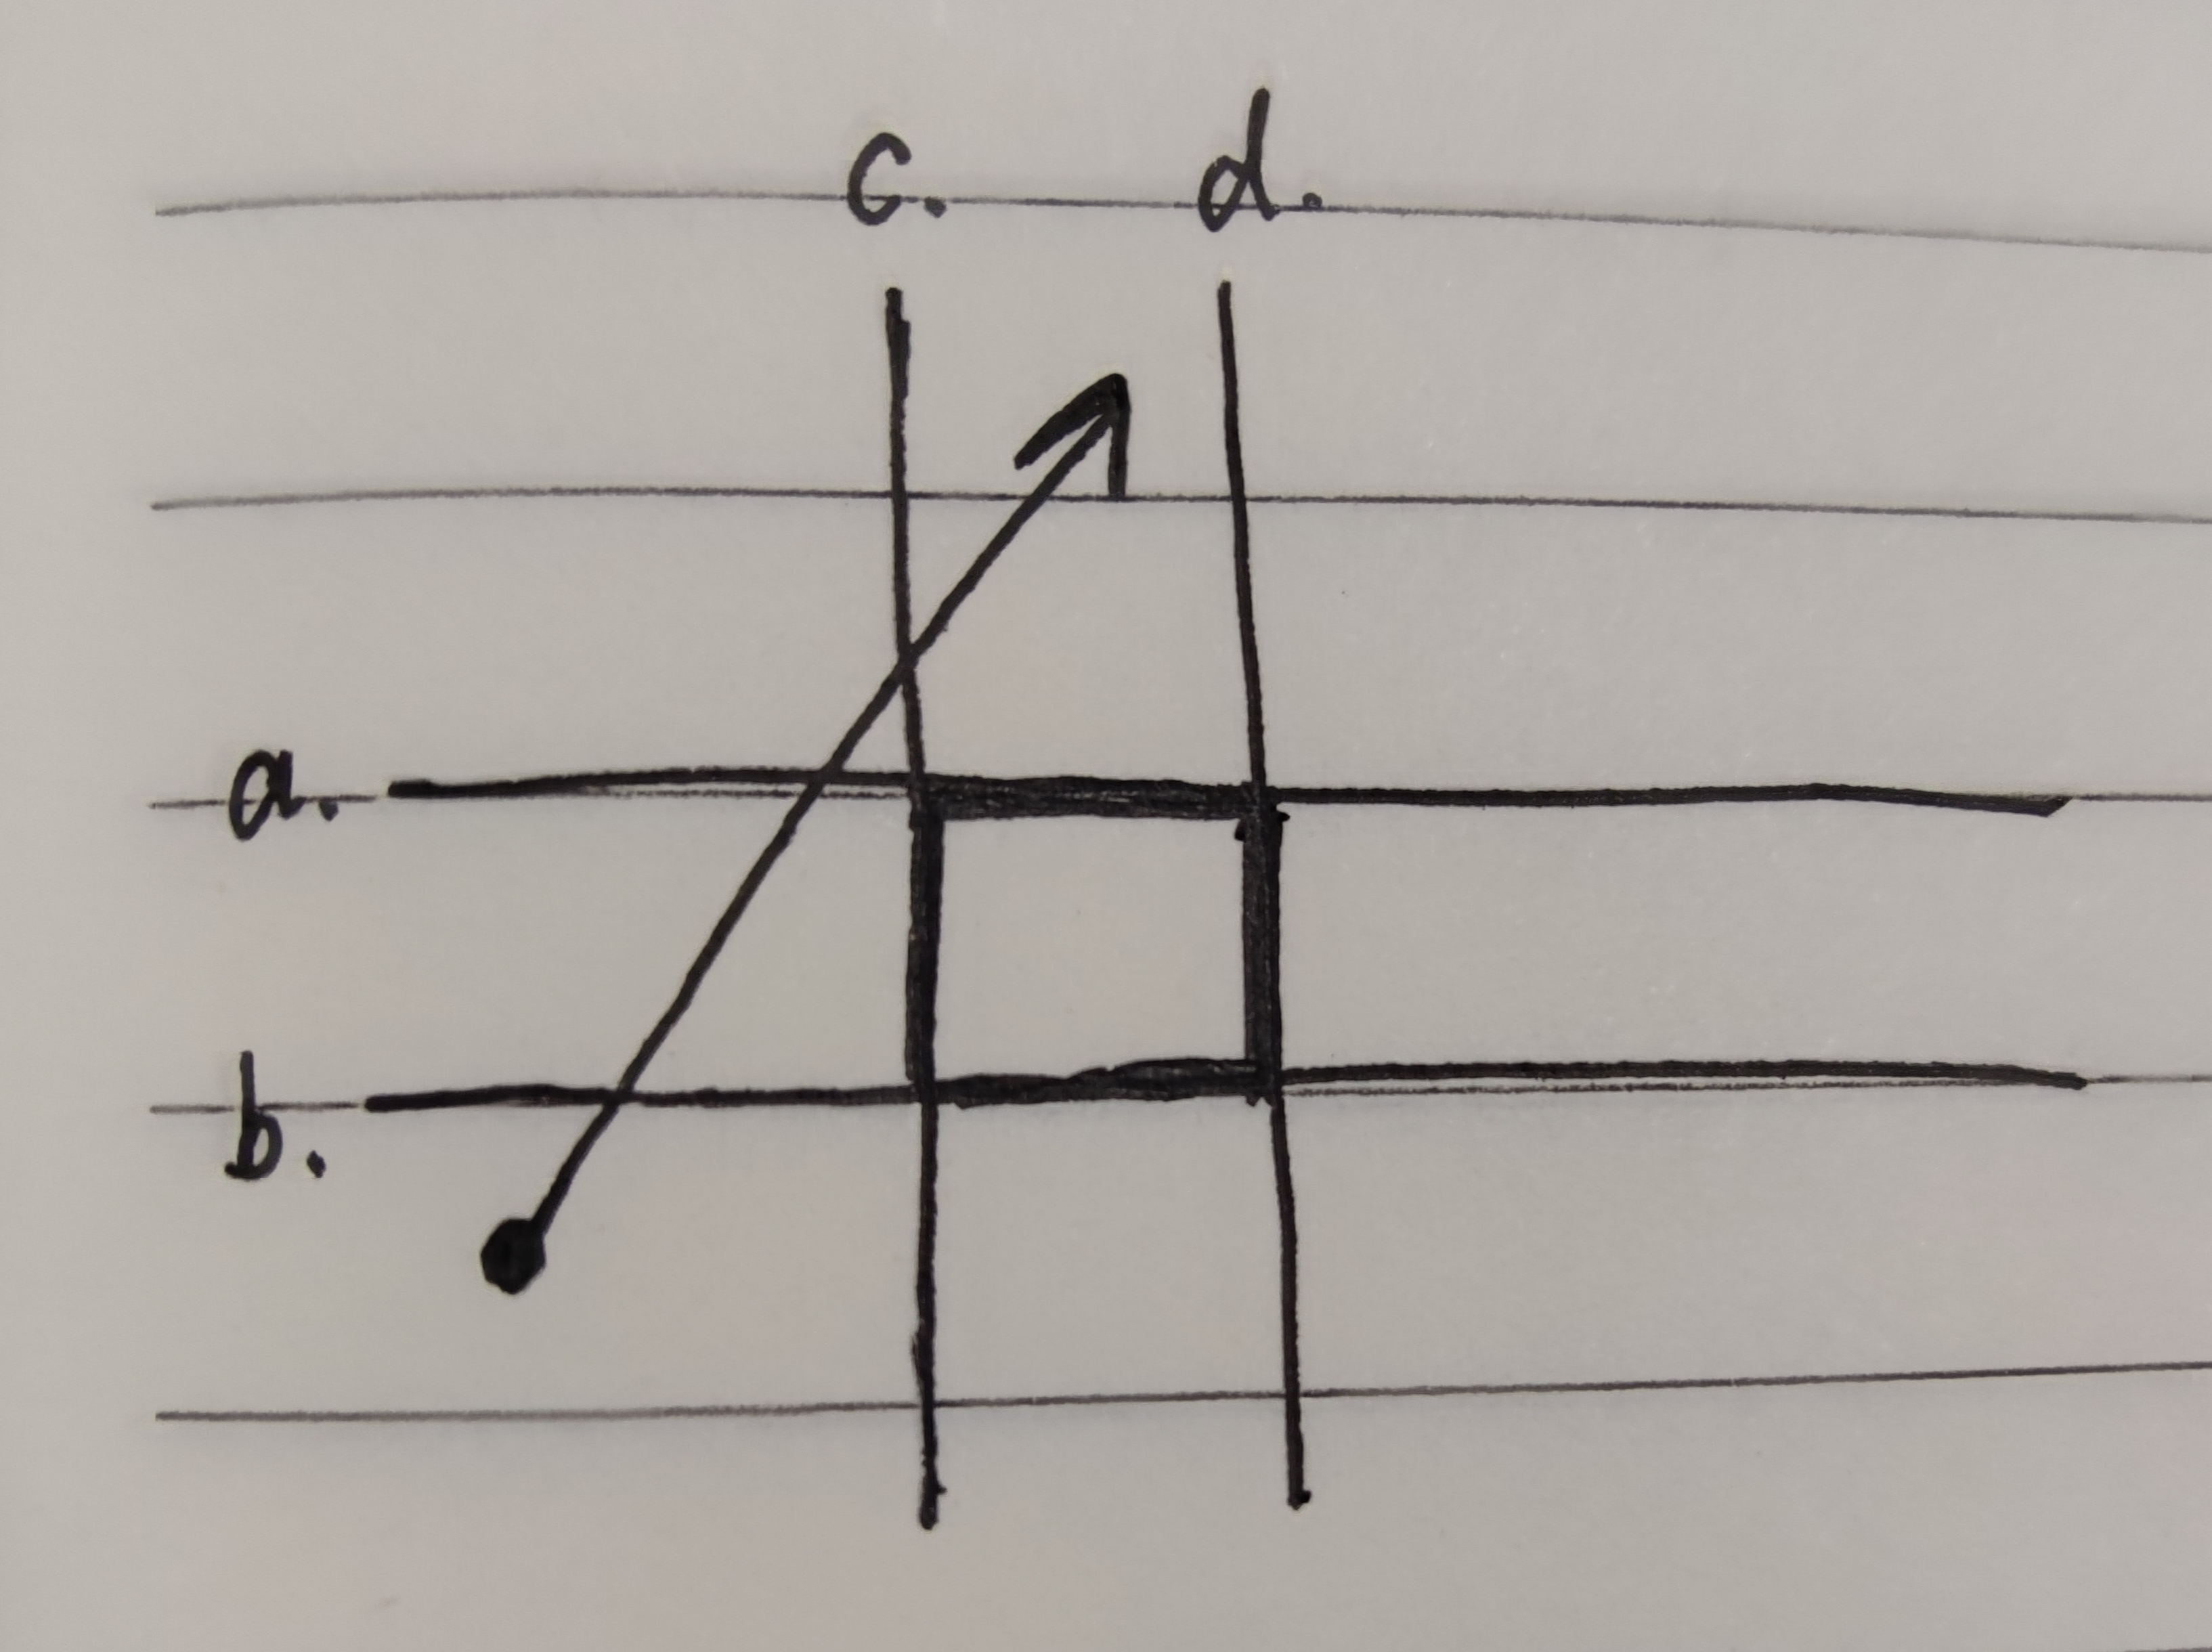 c. d.
a.
b.